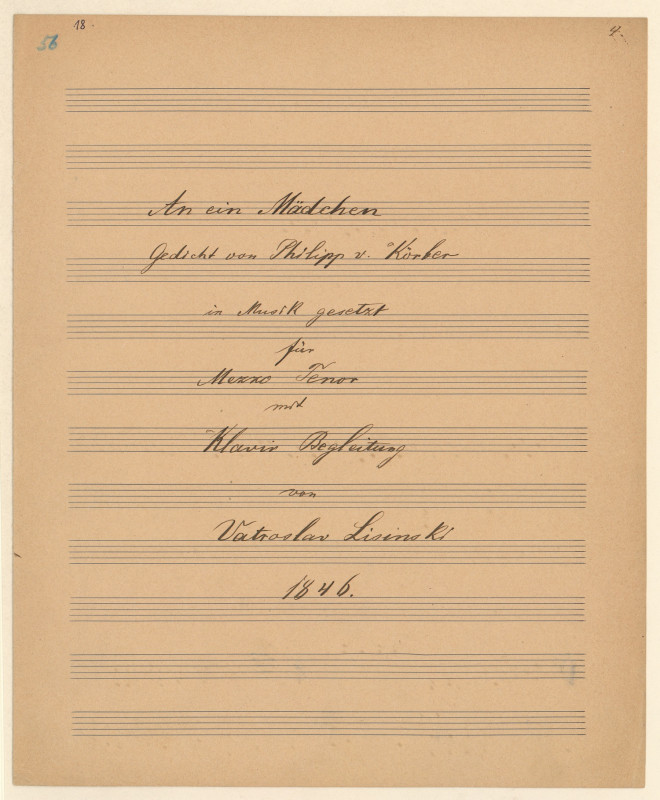 18.
56
4.
An ein Mädchen
Gedicht von Philipp v. Körber
in Musik gesetzt
für
Mezzo Tenor
mit
Klavir Begleitung
von
Vatroslav Lisinski
1846.